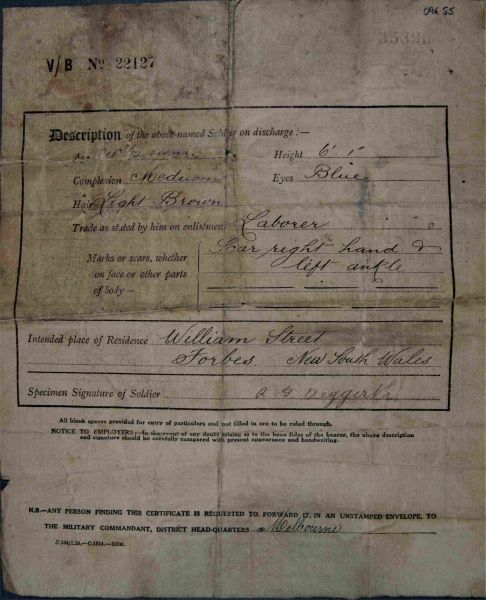 096 85
35325
V/B No 22127
Description of the above-named Soldier on discharge:—
Age
Height 6' 1"
Complexion Medium
Eyes Blue
Hair Light Brown
Trade as stated by him on enlistment Laborer
Marks or scars, whether on face or other parts of body— Scar right hand &
left ankle
Intended place of Residence William Street
Forbes New South Wales
Specimen Signature of Soldier
All blank spaces provided for entry of particulars and not filled in are to be ruled through.
NOTICE TO EMPLOYERS:—In the event of any doubt arising as to the bona fides of the bearer, the above description
and signature should be carefully compared with present appearance and handwriting.
N.B.—ANY PERSON FINDING THIS CERTIFICATE IS REQUESTED TO FORWARD IT, IN AN UNSTAMPED ENVELOPE, TO
THE MILITARY COMMANDANT, DISTRICT HEAD-QUARTERS Melbourne